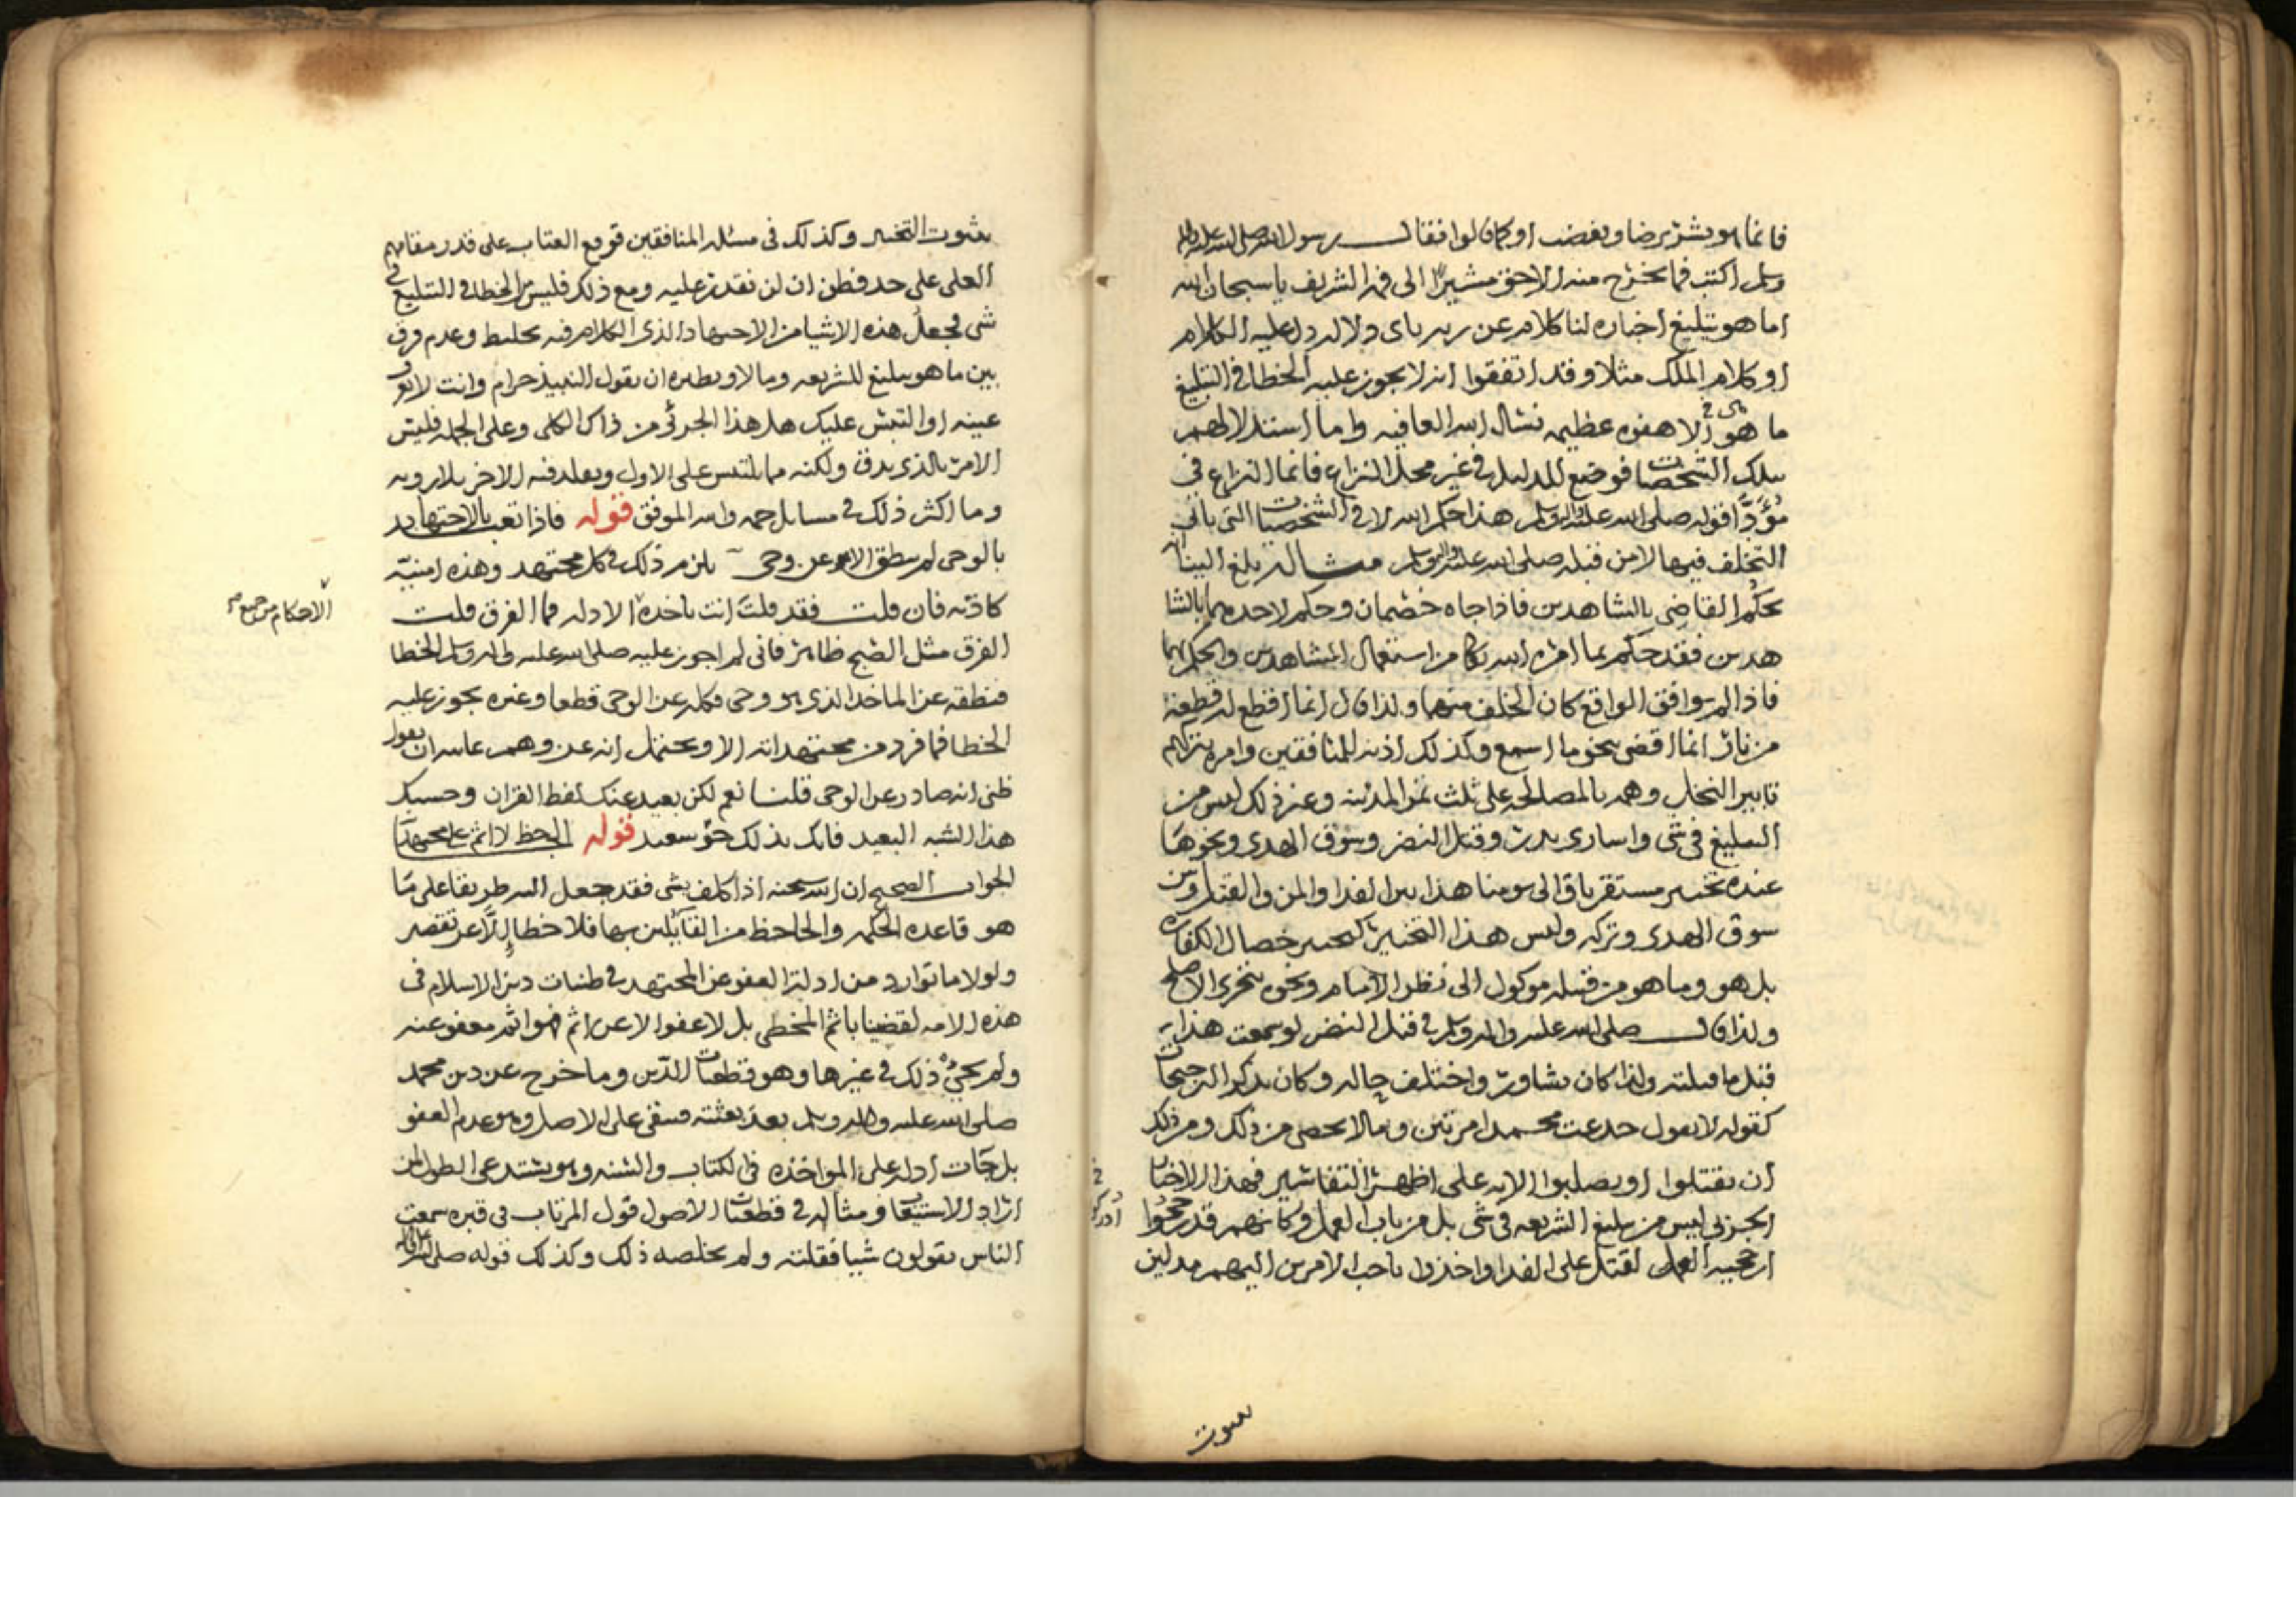 فانما هو بشر يرضا ويغضب او كما قالوا فقال رسول الله صلى الله عليه وسلم
وسلم اكتب فما يخرج منه الا حق مشيرا الى فمه الشريف يا سبحان الله
اما هو تبليغ اخباره لنا كلام عن ربه باى دلالة دل عليه الكلام
او كلام الملك مثلا وقد اتفقوا انه لا يجوز عليه الخطا في التبليغ
ما هو الا هفوه عظيمه نسال الله العافيه واما استدلالهم
بتلك الشخصيات فوضع للدليل في غير محل النزاع فانما النزاع في
مؤدا قوله صلى الله عليه واله وسلم هذا حكم الله لا في الشخصيات التي ياتي
التخلف فيها لا من قبله صلى الله عليه واله وسلم مثاله بلغ الينا
حكم القاضي بالشاهدين فاذا جاه خصمان وحكم لاحدهما بالشا
هدين فقد حكم بما امره الله تعالى من استعمال الشاهدين والحكم بهما
فاذا لم يوافق الواقع كان الخلف منهما ولذا قال انما اقطع له قطعة
من نار انما اقضي بنحو ما اسمع وكذلك اذنه للمنافقين وامره بتركهم
تابير النخل وهمه بالمصالحه على ثلث ثمر المدينه وغير ذلك ليس من
التبليغ في شى واسارى بدر وقتل النضر وسوق الهدى ونحوها
عنده تخيير مستقر باق الى يومنا هذا بين الفدا والمن والقتل وبين
سوق الهدى وتركه وليس هذا التخيير كتخيير خصال الكفاره
بل هو وما هو من قبيله موكول الى نظر الامام ونحوه بتحري الاصلح
ولذا قال صلى الله عليه واله وسلم في قتل النضر لو سمعت هذا
قبل ما قتلته ولذا كان يشاور واختلف حاله وكان يذكر الترجيحات
كقوله لا يقول خدعت محمدا مرتين وما لا يحصى من ذلك ومن ذلك
ان يقتلوا او يصلبوا الايه على اظهر التفاسير فهذا الاختيا
الجزئي ليس من تبليغ الشريعه في شى بل من باب العمل وكانهم قد رجحوا
ارجحيه العمل لقتل على الفدا واخذوا باحب الامرين اليهم مدلين
ثبوت
بثبوت التخيير وكذلك في مسئله المنافقين فوقع العتاب على قدر مقامهم
العلى على حد فظن ان لن نقدر عليه ومع ذلك فليس الخطا في التبليغ في
شى فجعل هذه الاشيا من الاجتهاد الذي الكلام فيه تخليط وعدم فرق
بين ما هو تبليغ للشريعه وما لا ونظيره ان يقول النبيذ حرام وانت لا تعرف
عينه او التبس عليك هل هذا الجزئي من ذاك الكلى وعلى الجمله فليس
الامر بالذي يدق ولكنه مما يلتبس على الاول ويقلد فيه الاخر بلا رويه
وما اكثر ذلك في مسايل جمه والله الموفق قوله فاذا تعبد بالاجتهاد
بالوحى لم ينطق الا عن وحى يلزم ذلك في كل مجتهد وهذه امنية
كاذبه فان قلت فقد قلت انت ياخذه الادله فما الفرق قلت
الاحكام من جميع صح
الفرق مثل الصبح ظاهر فاني لم اجوز عليه صلى الله عليه واله وسلم الخطا
فنطقه عن الماخذ الذي هو وحى فكله عن الوحى قطعا وغيره يجوز عليه
الخطا فما فرد من مجتهداته الا ويحتمل انه عن وهم غايته ان يقول
ظني انه صادر عن الوحى قلنا نعم لكن بعيد عنك لفظ القران وحسبك
هذا الشبه البعيد فانك بذلك حق سعيد قوله الجاحظ لا اثم على مجتهد
الجواب الصحيح ان الله سبحنه اذا كلف بشى فقد جعل اليه طريقا على ما
هو قاعده الحكمه والجاحظ من القائلين بها فلا خطا الا عن تقصير
ولولا ما توارد من ادلة العفو عن المجتهد في ظنيات دين الاسلام في
هذه الامه لقضينا باثم المخطى بل لا عفو الا عن اثم فهو اثم معفو عنه
ولم يجئ ذلك في غيرها وهو قطعيات الدين وما خرج عن دين محمد
صلى الله عليه واله وسلم بعد بعثته فبقى على الاصل وهو عدم العفو
بل جات ادلة على المواخذه في الكتاب والسنه وهو يستدعى الطول لمن
اراد الاستيفا ومثاله في قطعيات الاصول قول المرتاب في قبره سمعت
الناس يقولون شيا فقلته ولم يخلصه ذلك وكذلك قوله صلى الله عليه واله